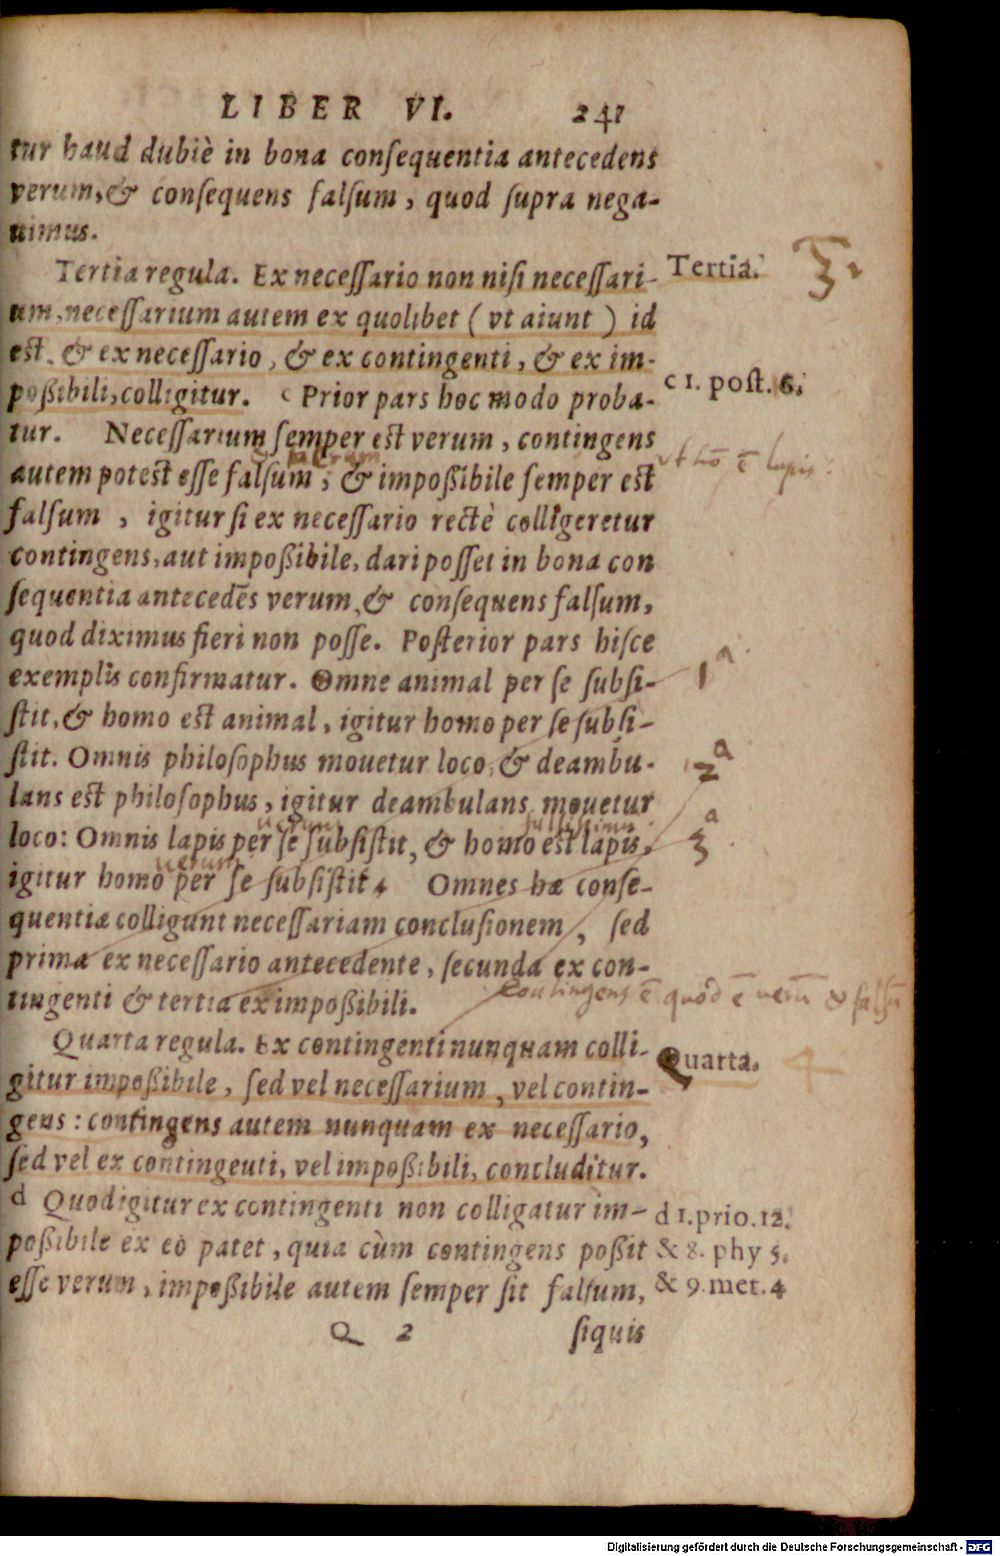 LIBER VI. 241
tur haud dubiè in bona conſequentia antecedens
verum, & conſequens falſum, quod ſupra nega-
uimus.
Tertia regula. Ex neceſſario non niſi neceſſari-
Tertia. 3.
um, neceſſarium autem ex quolibet (vt aiunt) id
est, & ex neceſſario, & ex contingenti, & ex im-
poßibili, colligitur. c Prior pars hoc modo proba-
c 1. post. 6.
tur. Neceſſarium ſemper est verum, contingens
autem potest eſſe falſum, & impoßibile ſemper est
vt hō ē lapis
falſum, igitur ſi ex neceſſario rectè colligeretur
contingens, aut impoßibile, dari poſſet in bona con
ſequentia antecedēs verum, & conſequens falſum,
quod diximus fieri non poſſe. Poſterior pars hiſce
exemplis confirmatur. Omne animal per ſe ſubſi-
1a
ſtit, & homo est animal, igitur homo per ſe ſubſi-
ſtit. Omnis philoſophus mouetur loco, & deambu-
2a
lans est philoſophus, igitur deambulans mouetur
verum falsissimum
loco: Omnis lapis per ſe ſubſiſtit, & homo est lapis,
3a
verum
igitur homo per ſe ſubſiſtit. Omnes hæ conſe-
quentiæ colligunt neceſſariam concluſionem, ſed
prima ex neceſſario antecedente, ſecunda ex con-
tingenti & tertia ex impoßibili.
Contingens ē quod ē verū & falsū
Quarta regula. Ex contingenti nunquam colli-
Quarta. 4
gitur impoßibile, ſed vel neceſſarium, vel contin-
gens: contingens autem nunquam ex neceſſario,
ſed vel ex contingenti, vel impoßibili, concluditur.
d Quod igitur ex contingenti non colligatur im-
d 1. prio. 12.
poßibile ex eo patet, quia cùm contingens poßit
& 8. phy 5.
eſſe verum, impoßibile autem ſemper ſit falſum,
& 9. met. 4
Q 2 ſiquis
Digitalisierung gefördert durch die Deutsche Forschungsgemeinschaft - DFG